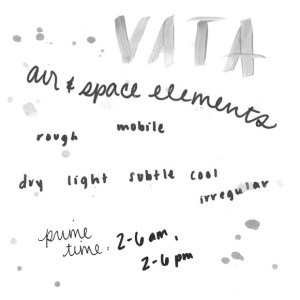 VATA
air & space elements
rough mobile
dry light subtle cool
irregular
prime
time: 2-6 am,
2-6 pm